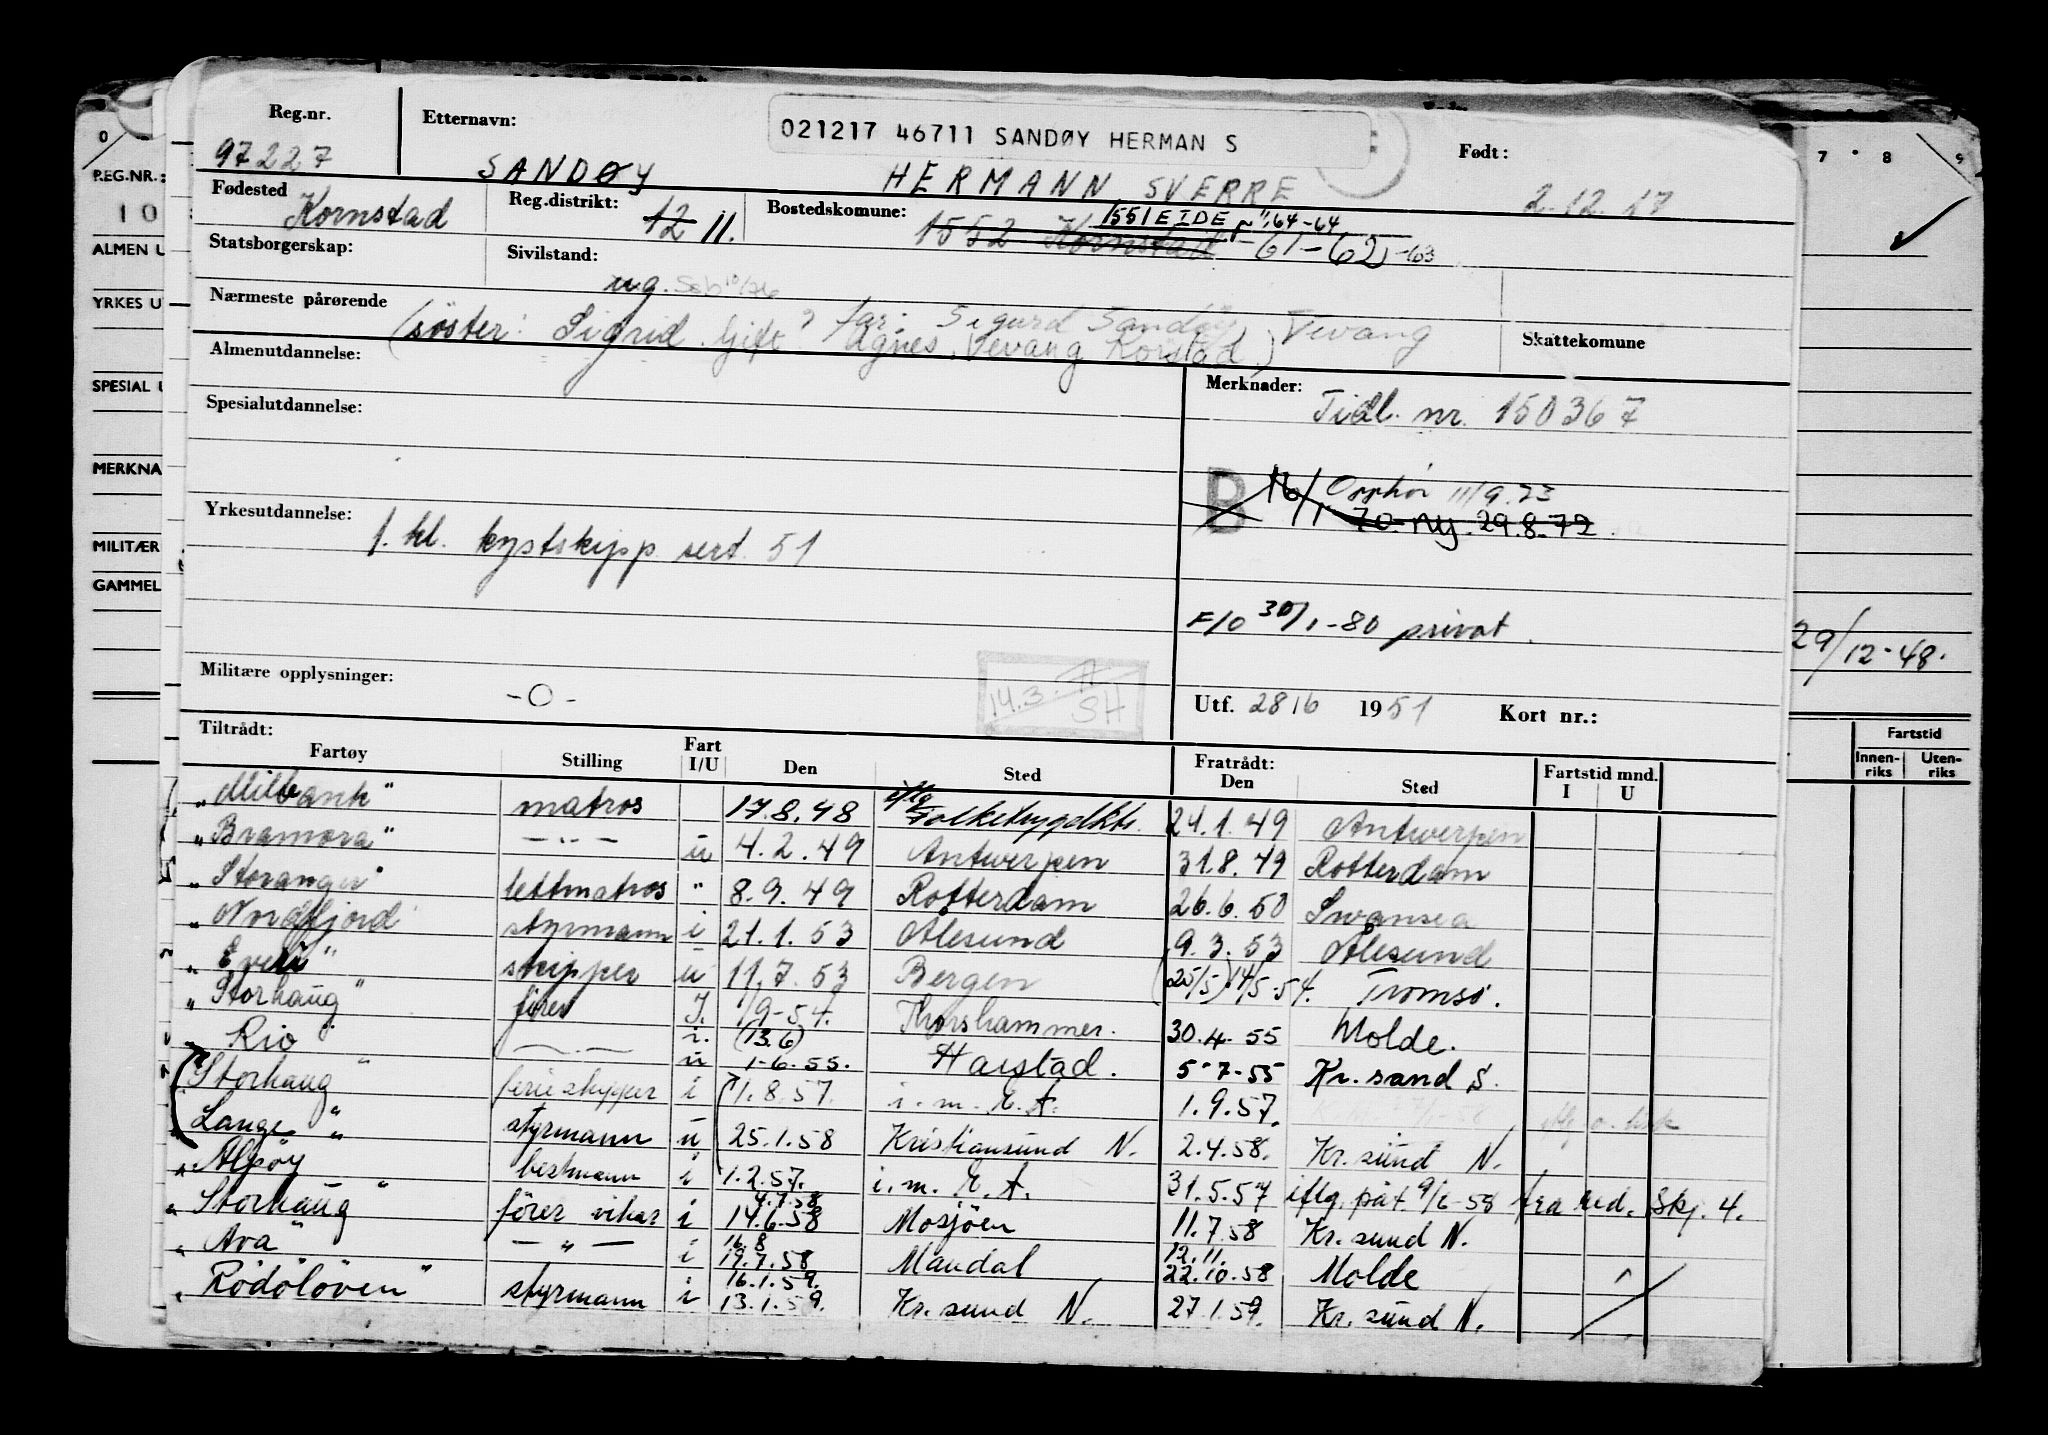 Reg.nr. Etternavn: 021217 46711 SANDØY HERMAN S Født:
97227 SANDØY HERMANN SVERRE 2.12.17
Fødested Kornstad Reg.distrikt: 12 11. Bostedskomune: 1552 Kornstad 1551 EIDE 64-64 -61-62-63
Statsborgerskap: Sivilstand: ug.
Nærmeste pårørende (søster: Sigrid gift? far: Sigurd Sandøy Vevang
Agnes, Vevang Korstad.) Skattekomune
Almenutdannelse: Merknader: Tidl. nr. 150367
Spesialutdannelse:
B 16/1 Opphør 11/9.73
70-ny. 29.8.72
Yrkesutdannelse: 1. kl. kystskipp. sert. 51
F/O 30/1-80 privat.
Militære opplysninger: -0- 14.3. SH Utf. 28/6 1951 Kort nr.:
Tiltrådt: Fratrådt:
Fartøy Stilling Fart I/U Den Sted Den Sted Fartstid mnd. I U
"Milbank" matros 17.8.48 iflg Folketrygdktr. 21.1.49 Antwerpen
"Bramora" -"- u 4.2.49 Antwerpen 31.8.49 Rotterdam
"Storanger" lettmatros " 8.9.49 Rotterdam 26.6.50 Swansea
"Nordfjord" styrmann i 21.1.53 Ålesund 9.3.53 Ålesund
" " skipper u 11.7.53 Bergen (25/5) 14/5.54. Tromsø.
"Storhaug" fører I. 1/9-54. Thorshammer. 30.4.55 Molde.
Rio i. u (13.6) 1-6.55. Harstad. 5-7-55 Kr.sand S.
Storhaug " ferieskipper i 1.8.57. i.m. E.A. 1.9.57.
Lange " styrmann u 25.1.58 Kristiansund N. 2.4.58. Kr.sund N.
"Alpøy bestmann i 1.2.57. i.m. E.A. 31.5.57 iflg. påt. 9/6-58 fra red. Skj. 4.
"Storhaug" fører vikar i 4.7.58 14.6.58 Mosjøen 11.7.58 Kr.sund N.
"Ava" -"- i 16.8 19.7.58 Mandal 12.11. 22.10.58 Molde
"Rödölöven" styrmann i 16.1.59. 13.1.59. Kr.sund N. 27.1.59. Kr.sund N.
0
REG.NR.:
10
ALMEN U
YRKES U
SPESIAL U
MERKNA
MILITÆR
GAMMEL
7 8 9
29/12-48.
Fartstid
Innenriks Utenriks